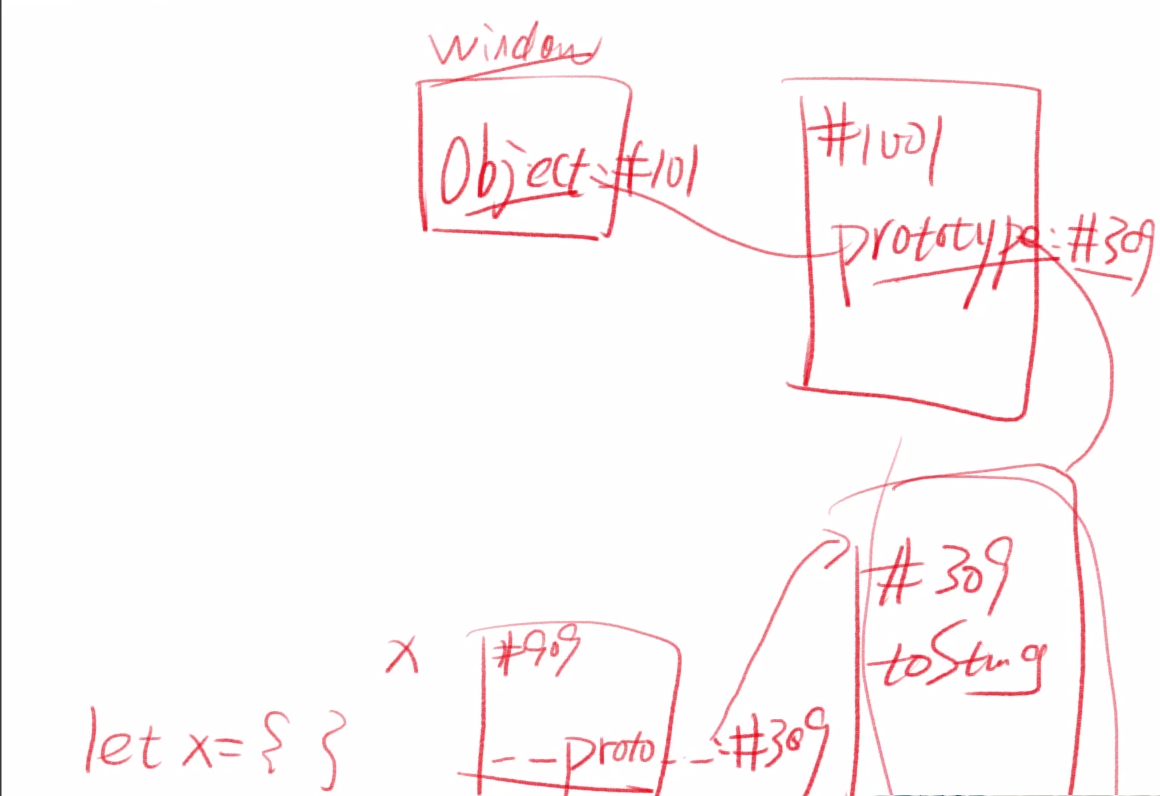 window
Object:#101
#1001
prototype:#309
#309
toString
x
#909
__proto__:#309
let x={ }